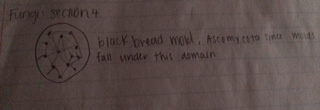 Fungi: section 4.
black bread mold, Ascomycota since molds
fall under this domain